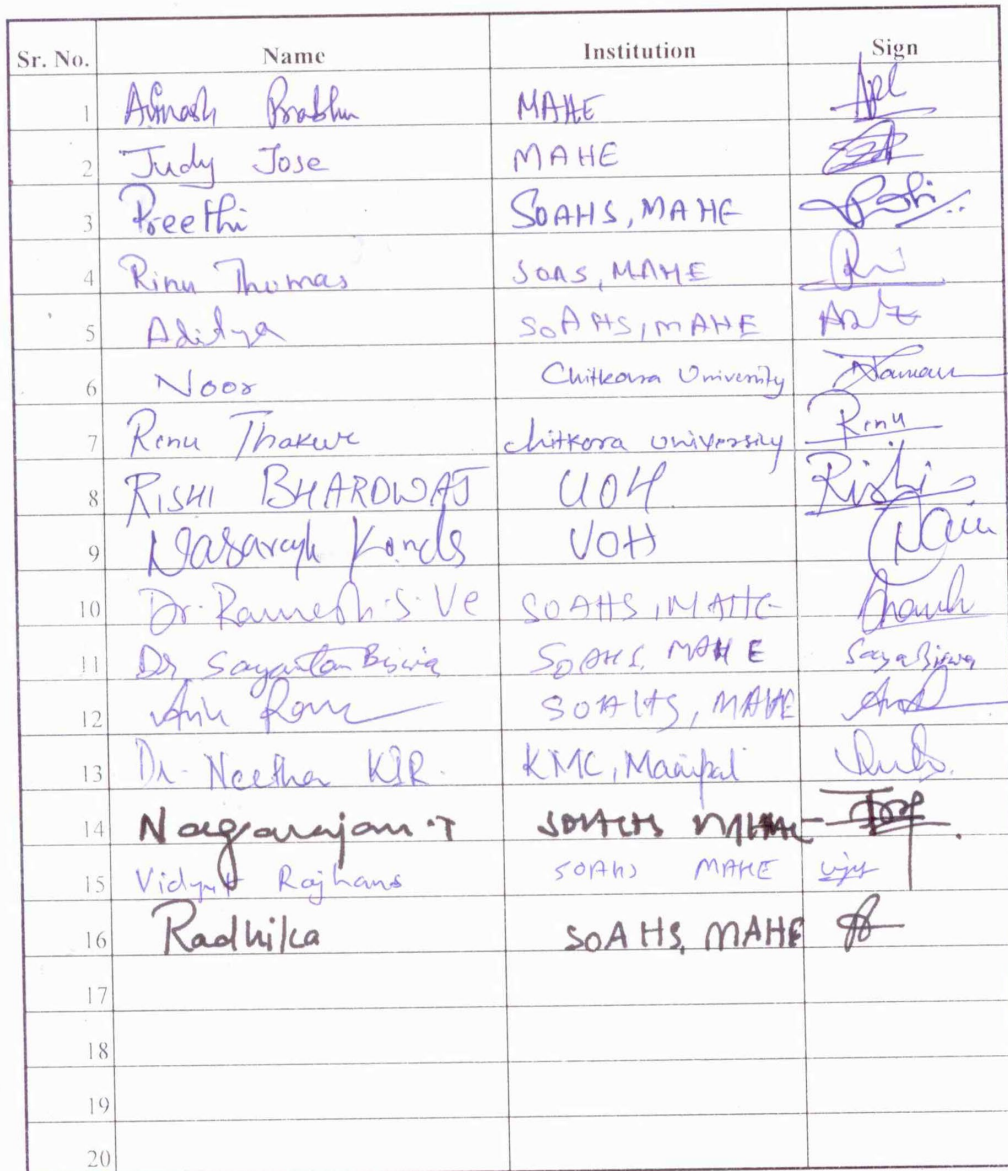 Sr. No. Name Institution Sign
1 Avinash Prabhu MAHE
2 Judy Jose MAHE
3 Preethi SOAHS, MAHE
4 Rinu Thomas SOAS, MAHE
5 Aditya SOAHS, MAHE
6 Noor Chitkara University
7 Renu Thakur chitkara university Renu
8 RISHI BHARDWAJ UOH Rishi
9 UOH
10 Dr. Ramesh. S. Ve SOAHS, MAHE
11 Dr Sayantan Biswas SOAHS, MAHE
12 SOAHS, MAHE
13 Dr. Neetha KMC, Manipal
14 Nagarajan. T SOAHS MAHE
15 Vidyut Rajhans SOAHS MAHE
16 Radhika SOAHS, MAHE
17
18
19
20